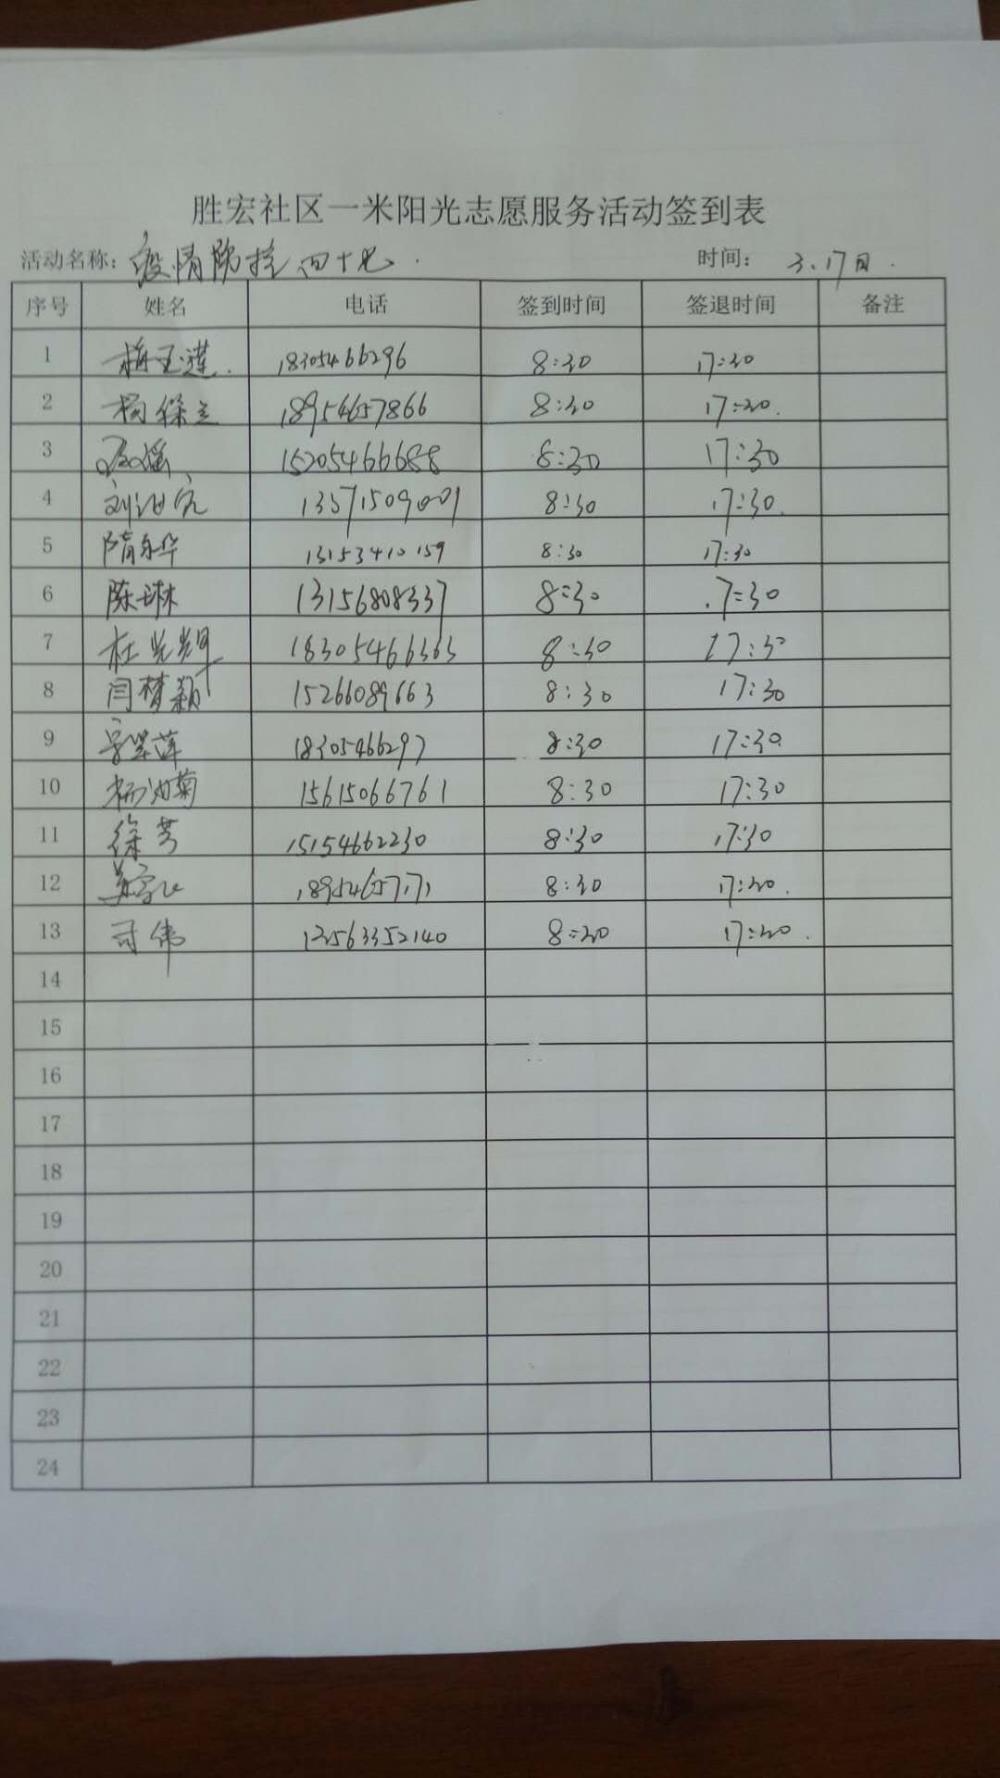 胜宏社区一米阳光志愿服务活动签到表
活动名称: 疫情防控四十九. 时间: 3.17日.
序号 姓名 电话 签到时间 签退时间 备注
1 梅玉莲. 18305466296 8:30 17:30
2 杨 18954657866 8:30 17:30.
3 15205466688 8:30 17:30
4 刘 8:30 17:30.
5 隋永华 13153410159 8:30 17:30
6 陈琳 13156808337 8:30 17:30
7 杜光辉 18305466363 8:30 17:30
8 闫梦颖 15266089663 8:30 17:30
9 18305466297 8:30 17:30
10 菊 15615066761 8:30 17:30
11 徐芳 15154662230 8:30 17:30
12 18954657171 8:30 17:30.
13 司伟 8:30 17:30.
14
15
16
17
18
19
20
21
22
23
24